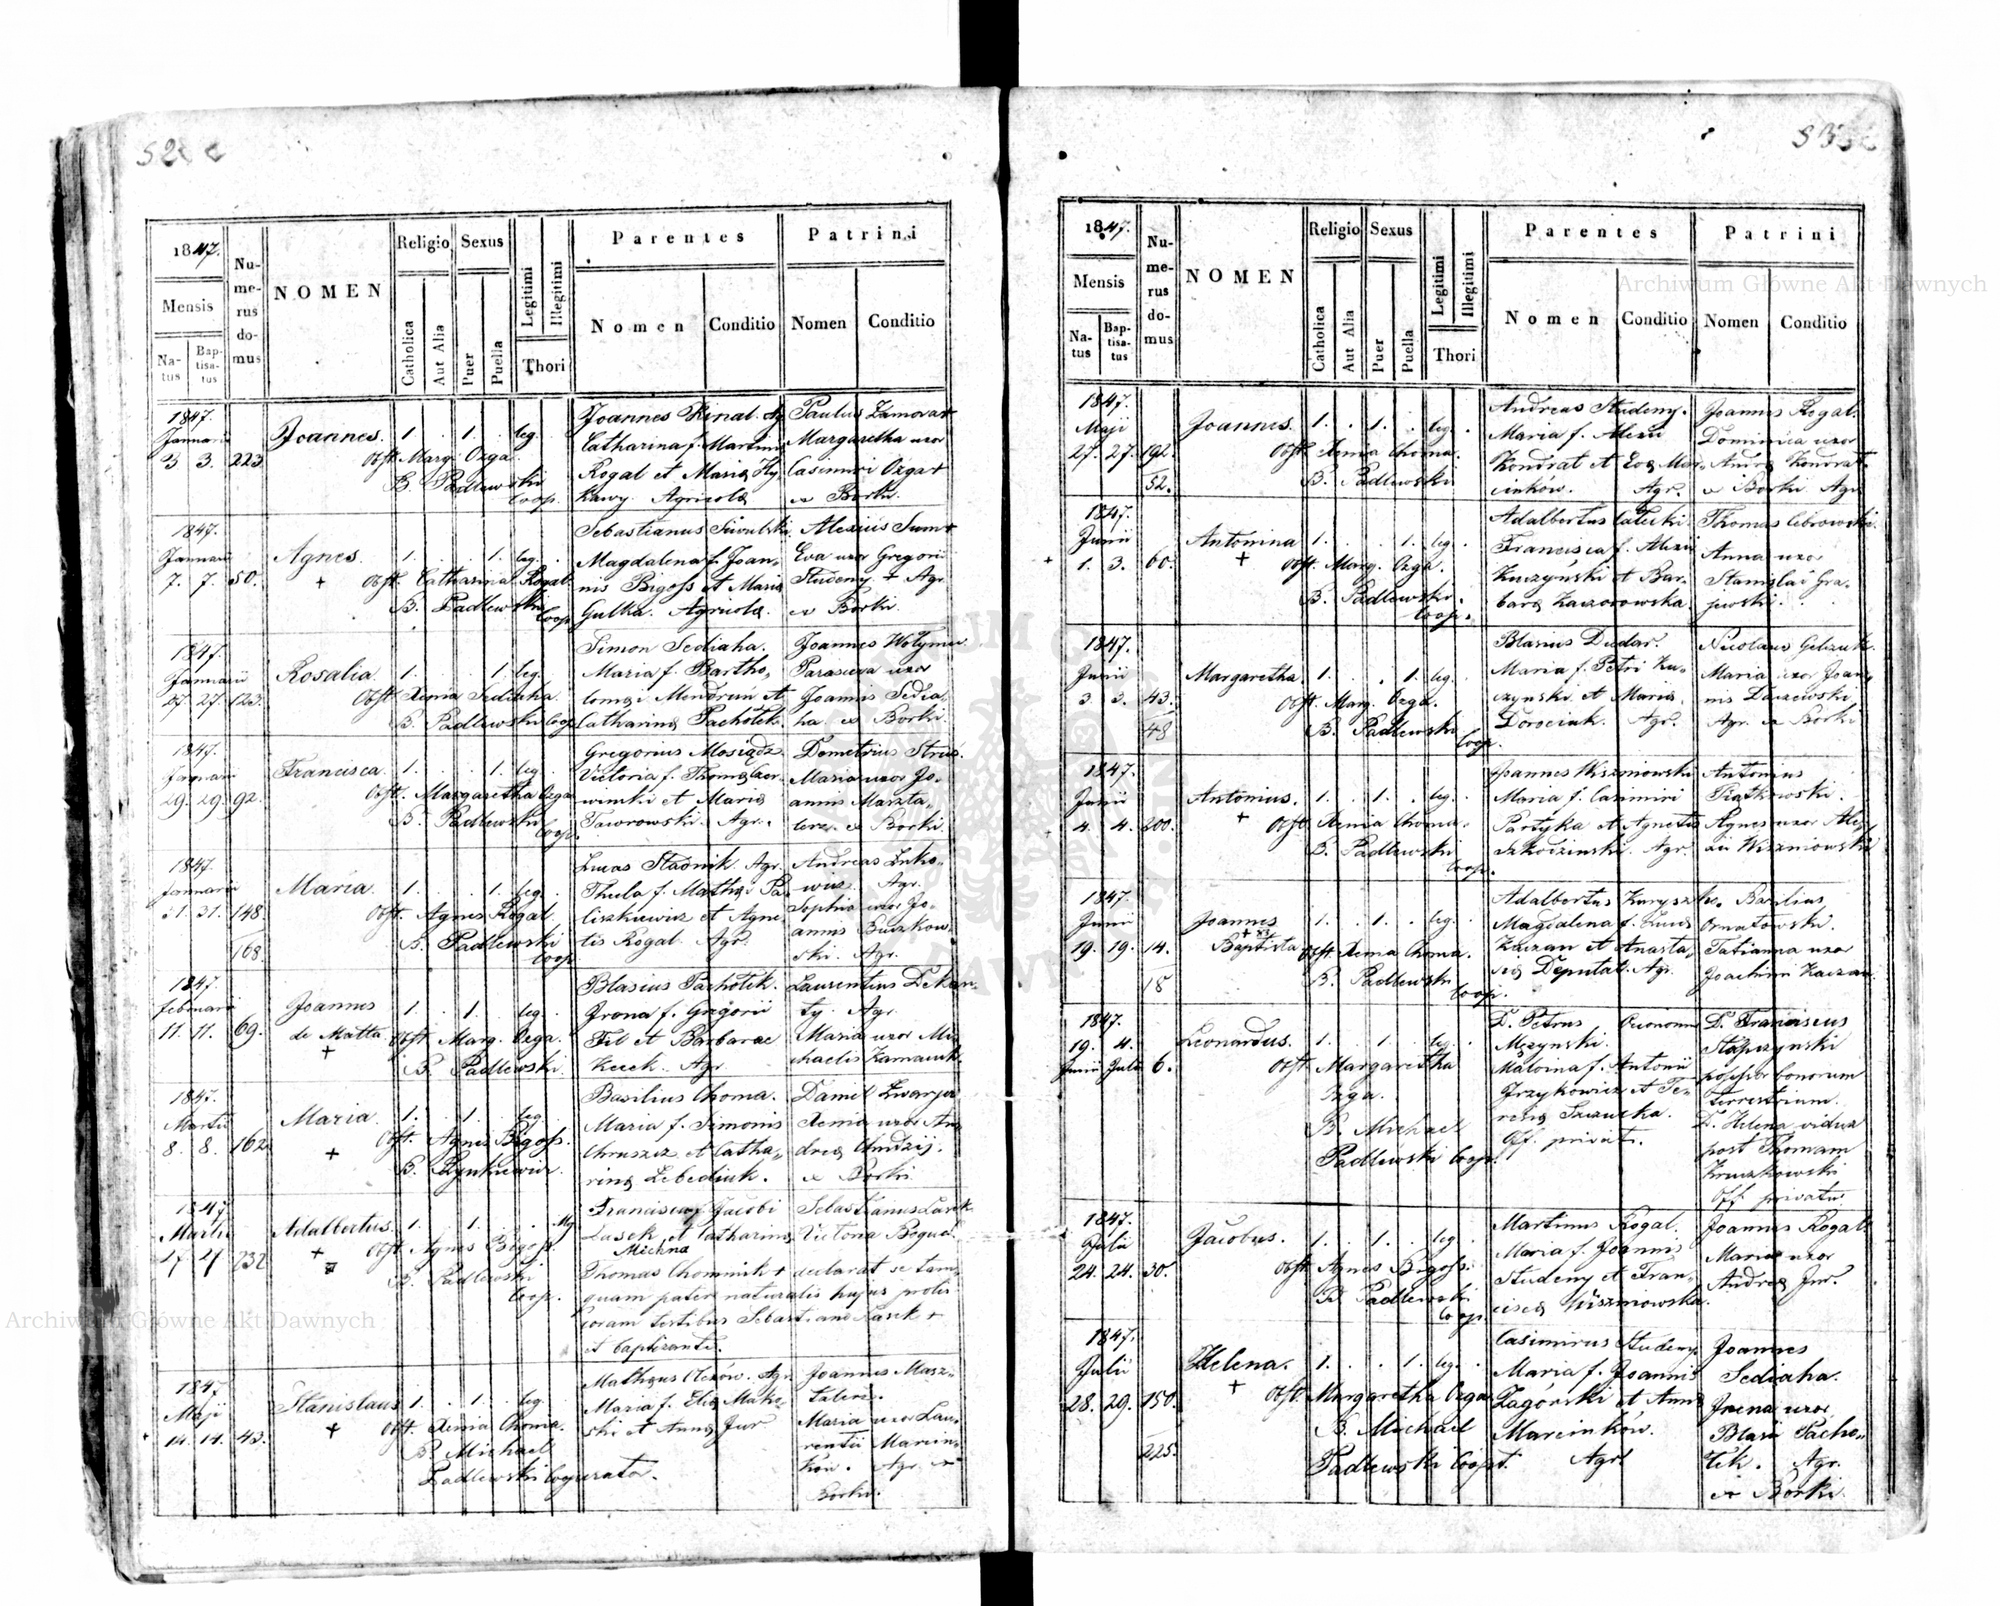 1847.
Mensis
Natus
Baptisatus
Numerus domus
NOMEN
Religio
Catholica
Aut Alia
Sexus
Puer
Puella
Legitimi
Illegitimi
Thori
Parentes
Nomen
Conditio
Patrini
Nomen
Conditio
1847.
Januarii
3 3. 223
Joannes. 1. . 1. . leg.
Obst. Marg. Ozga.
B. Padlewski
Coop.
Joannes
Catharina f. Martini
Rogal et Mariæ
Agricolæ
Paulus
Margaretha uxor
Casimiri Ozga +
x Borki.
1847.
Januarii
7. 7. 50.
Agnes. 1. . . 1. leg.
+ Obst. Catharina Rogal
B. Padlewski
Coop.
Sebastianus
Magdalena f. Joan-
nis Bigoss et Mariæ
Gulka. Agricolæ.
Alexius Sum +
Eva uxor Gregorii
Studeny + Agr.
x Borki.
1847.
Januarii
27. 27. 123.
Rosalia. 1. . . 1. leg.
Obst. Xenia Sediaha
B. Padlewski Coop.
Simon Sediaha.
Maria f. Bartho-
lomæi Mendrun et
Catharinæ Pachołek.
Joannes Wołyniec
Parasceva uxor
Joannis Sedia-
ha. x Borki.
1847.
Januarii
29. 29. 92.
Francisca. 1. . . 1. leg.
Obst. Margaretha Ozga
B. Padlewski
Coop.
Gregorius Mosiądz.
Victoria f. Thomæ
et Mariæ
Jaworowski. Agr.
Demetrius
Maria uxor Jo-
annis Maszta-
lerz. x Borki.
1847.
Januarii
31. 31. 148.
168
Maria. 1. . . 1. leg.
Obst. Agnes Rogal
B. Padlewski
Coop.
Lucas Stadnik Agr.
Thecla f. Mathæi Pa-
liszkiewicz et Agne-
tis Rogal Agr.
Andreas
Agr.
Sophia uxor Jo-
annis Buczkow-
ski. Agr.
1847.
Februarii
11. 11. 69.
Joannes 1. . 1. . leg.
de Matta
+
Obst. Marg. Ozga.
B. Padlewski.
Blasius Pachołek.
Irona f. Grigorii
Fil et Barbarae
Agr.
Laurentius Dekan-
ty. Agr.
Maria uxor Mi-
chaelis
1847.
Martii
8. 8. 162
Maria 1. . 1. . leg.
+
Obst. Agnes Bigoss.
B.
Basilius Choma.
Maria f. Simonis
Chruszcz et Catha-
rinæ Lebediuk.
Daniel
Xenia uxor An-
dreæ
x Borki.
1847.
Martii
27 27 232
Adalbertus. 1. . 1. . . Illg.
+
Obst. Agnes Bigoss.
B. Padlewski
Coop.
Francisca f. Jacobi
Lasek et Catharinæ
Michna
Sebastianus Lasek
Victoria
Thomas Chominik + declarat se tam-
quam patre naturalis hujus prolis
coram testibus Sebastiano Lasek +
et baptizante.
1847
Maji
14. 14. 43.
Stanislaus 1. . 1. . leg.
+
Obst. Xenia Choma.
B. Michael
Padlewski Cooperator.
Mathæus Agr.
Maria f. Eliæ
ski et Annæ Jur
Joannes Masz-
talerz.
Maria uxor Lau-
rentii Marcin-
ków. Agr. x
Borki.
1847.
Mensis
Natus
Baptisatus
Numerus domus
NOMEN
Religio
Catholica
Aut Alia
Sexus
Puer
Puella
Legitimi
Illegitimi
Thori
Parentes
Nomen
Conditio
Patrini
Nomen
Conditio
1847.
Maji
27. 27. 192.
52.
Joannes. 1. . 1. . leg.
Obst. Xenia Choma.
B. Padlewski
Andreas Studeny.
Maria f. Alexii
Kondrat et Evæ Mar-
cinków. Agr.
Joannes Rogal.
Dominica uxor
Andreæ Kondrat.
x Borki. Agr.
1847.
Junii
1. 3. 60.
Antonina 1. . . 1. leg.
+
Obst. Marg. Ozga.
B. Padlewski.
Coop.
Adalbertus
Francisca f. Alexii
Kuczyński et Bar-
baræ Kaczorowska.
Thomas Cebrowski.
Anna uxor
Stanislai Gra-
jewski.
1847.
Junii
3. 3. 43.
48
Margaretha. 1. . . 1. leg.
Obst. Marg. Ozga.
B. Padlewski
Coop.
Blasius Dudar.
Maria f. Petri Ku-
czynski et Mariæ
Dorociak. Agr.
Nicolaus
Maria uxor Joan-
nis
Agr. x Borki
1847.
Junii
4. 4. 200.
Antonius. 1. . 1. . leg.
+
Obst. Xenia Choma.
B. Padlewski
Coop.
Joannes Wiszniowski
Maria f. Casimiri
Partyka et Agnetis
Agr.
Antonius
Piątkowski.
Agnes uxor Ale-
xii Wiszniowski
1847.
Junii
19. 19. 14.
18
Joannes 1. . 1. . leg.
Baptista
Obst. Xenia Choma.
B. Padlewski
Coop.
Adalbertus
Magdalena f. Lucæ
Kaczan et Anasta-
siæ Deputat. Agr.
Basilius
Ornatowski.
Tatianna uxor
Joachimi Kaczan.
1847.
19. 4.
Junii Julii 6.
Leonardus. 1. . 1. . leg.
Obst. Margaretha
Ozga.
B. Michael
Padlewski Coop.
D. Petrus Oeconomus
Męzynski.
Malvina f. Antonii
Grzykowicz et Te-
resiæ
Off. privati.
D. Franciscus
possessor bonorum
terrestrium.
D. Helena vidua
post Thomam
Kruszkowski
Off. privatus
1847.
Julii
24. 24. 30.
Jacobus. 1. . 1. . leg.
Obst. Agnes Bigoss.
B. Padlewski
Coop.
Martinus Rogal.
Maria f. Joannis
Studeny et Fran-
ciscæ Wiszniowska.
Joannes Rogal
Maria uxor
Andreæ Jur.
1847.
Julii
28. 29. 150.
225.
Helena. 1. . . 1. leg.
+
Obst. Margaretha Ozga
B. Michael
Padlewski Coopt.
Casimirus Studeny
Maria f. Joannis
Zagórski et Annæ
Marcinków.
Agr.
Joannes
Sediaha.
Irena uxor
Blasii Pacho-
łek. Agr.
x Borki.
Archiwum Główne Akt Dawnych
Archiwum Główne Akt Dawnych